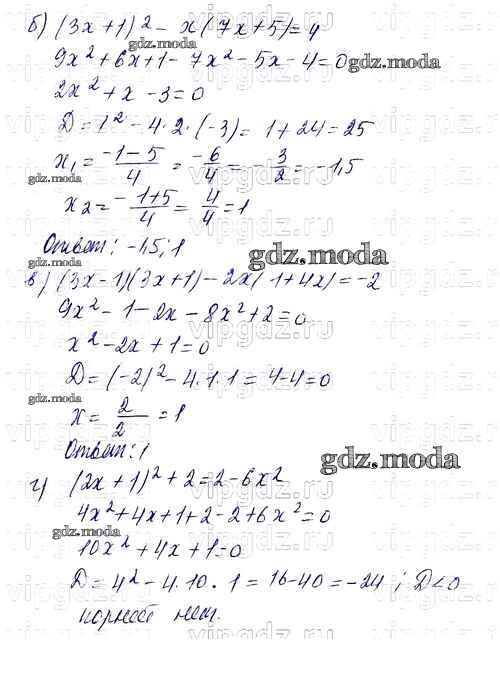 б) (3x+1)² - x(7x+5)=4
gdz.moda
9x²+6x+1-7x²-5x-4=0
gdz.moda
2x²+x-3=0
D=1²-4·2·(-3)=1+24=25
x₁=(-1-5)/4=-6/4=-3/2=-1,5
gdz.moda
x₂=(-1+5)/4=4/4=1
Ответ: -1,5; 1
gdz.moda
в) (3x-1)(3x+1)-2x(1+4x)=-2
9x²-1-2x-8x²+2=0
gdz.moda
x²-2x+1=0
D=(-2)²-4·1·1=4-4=0
gdz.moda
x=2/2=1
Ответ: 1
gdz.moda
г) (2x+1)²+2=2-6x²
4x²+4x+1+2-2+6x²=0
gdz.moda
10x²+4x+1=0
D=4²-4·10·1=16-40=-24; D<0
gdz.moda
корней нет.
vipgdz.ru